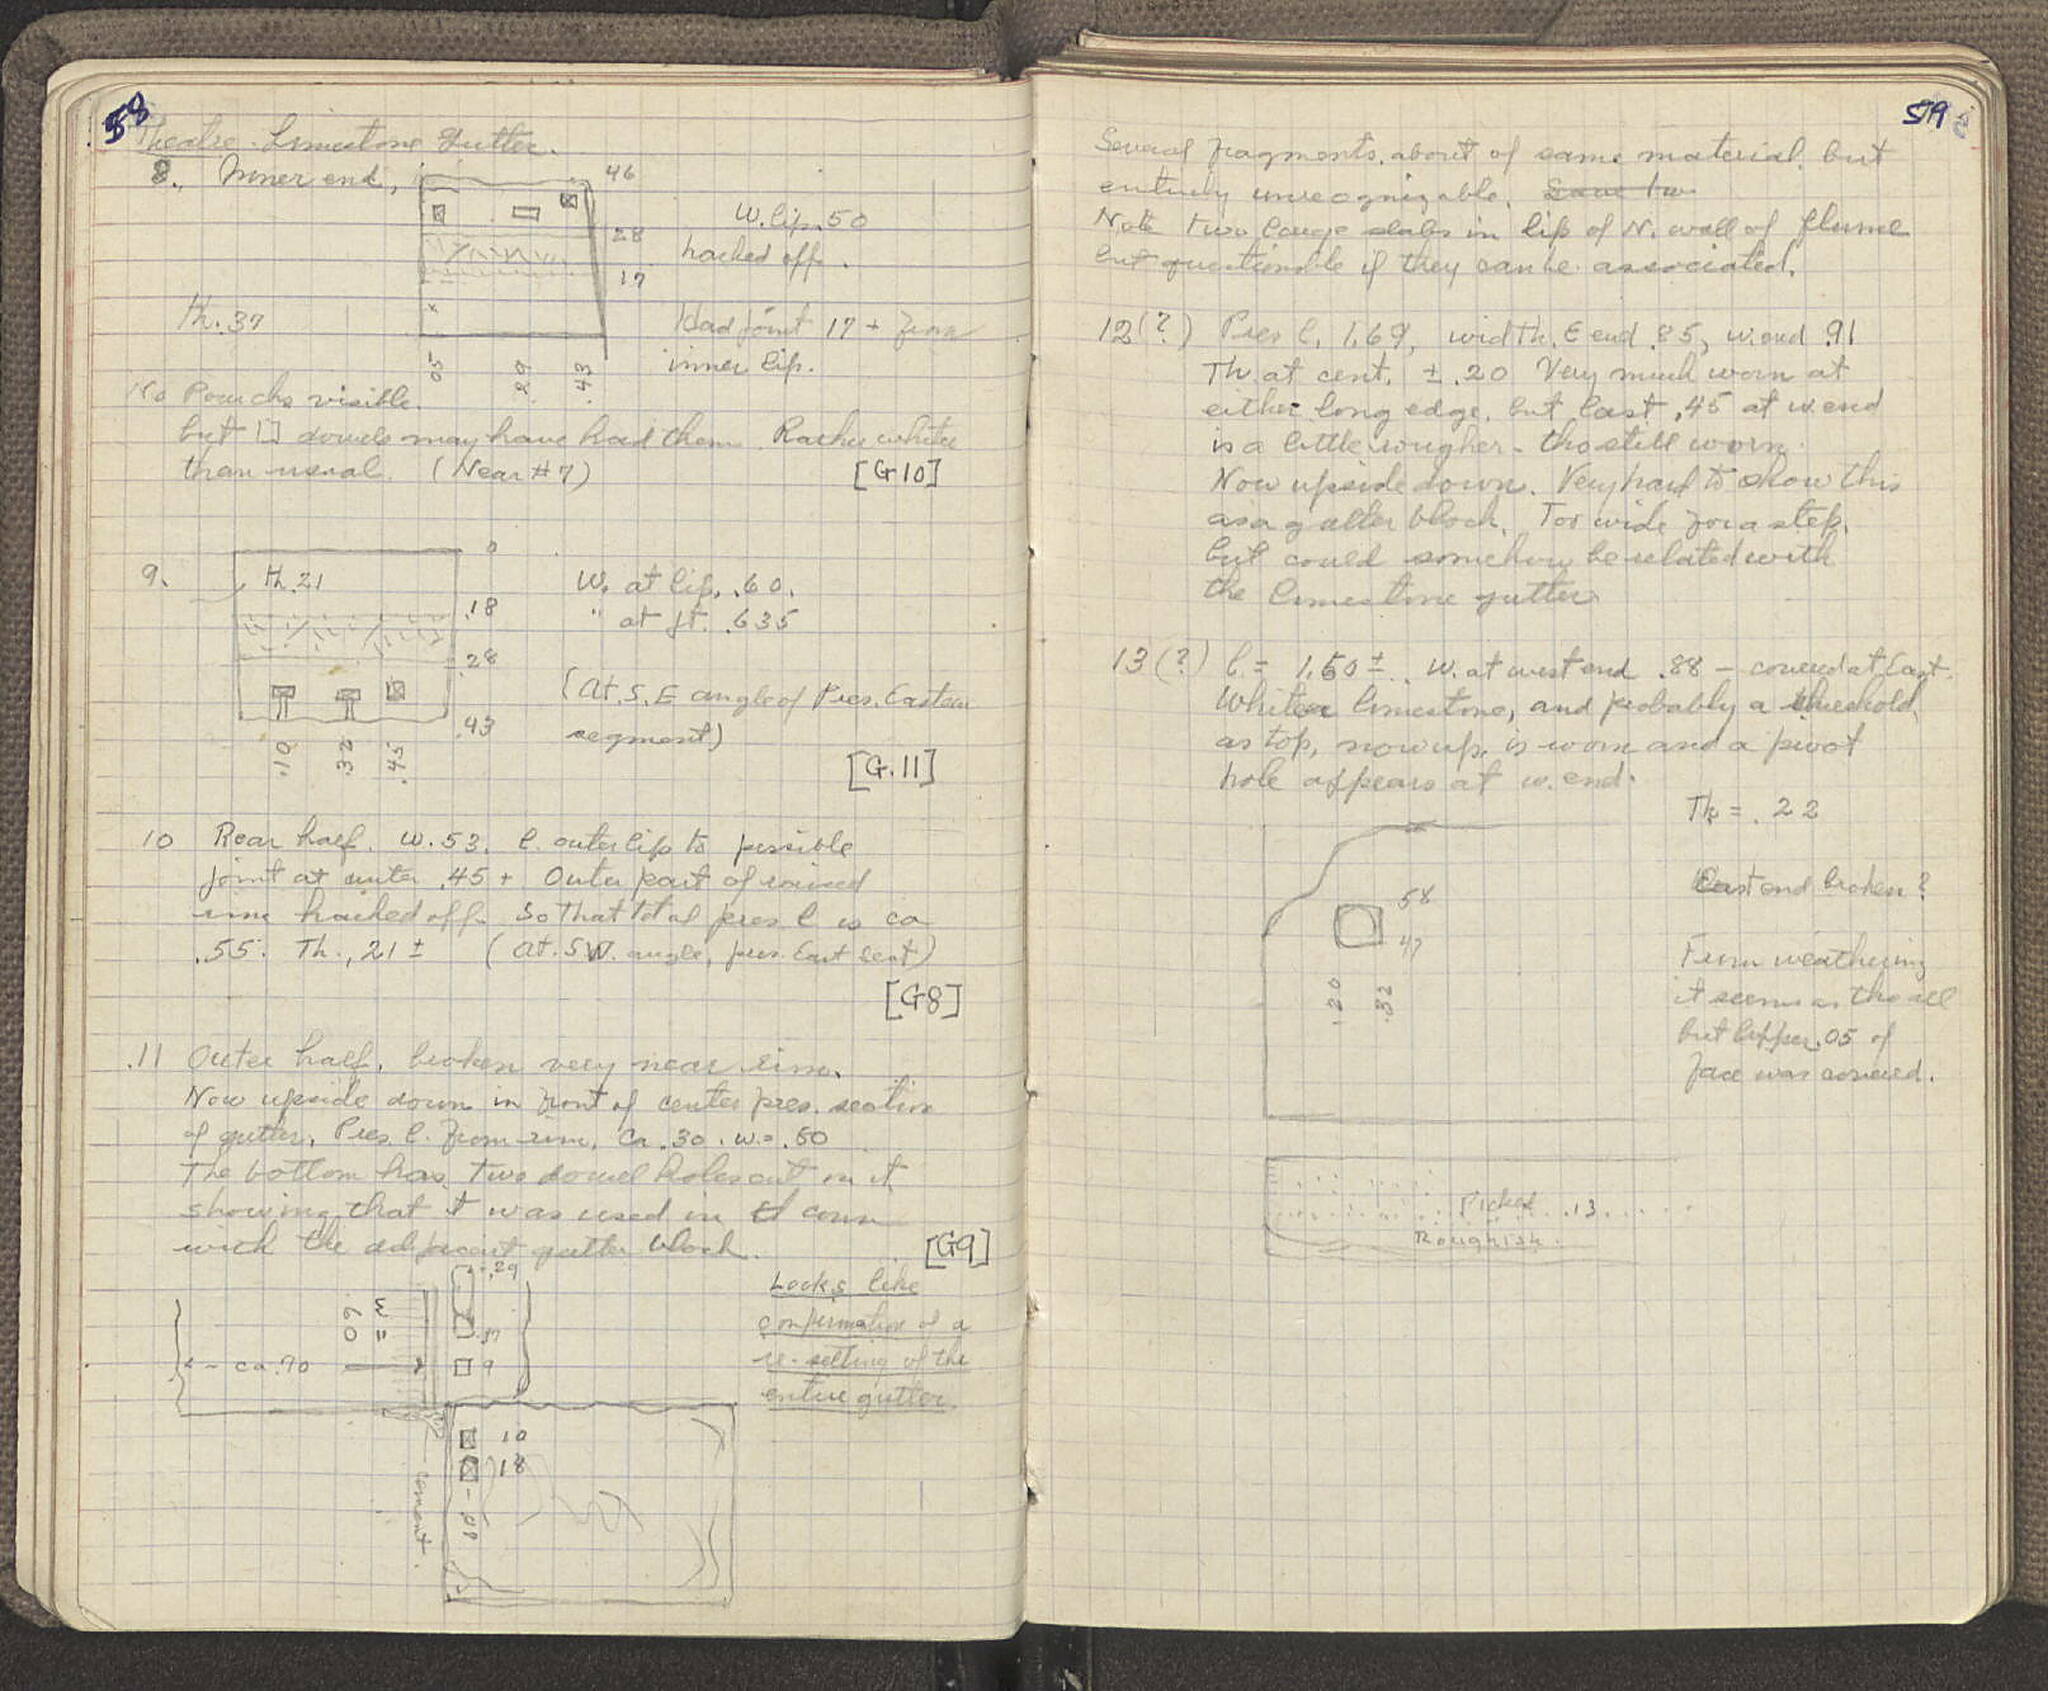 58
Theatre - Limestone Gutter.
8. Inner end,
46
28
17
W. lip .50
hacked off.
th. 37
Had joint 17 + from
inner lip.
05
.29
.43
No Pour chs visible.
but [] dowels may have had them. Rather whiter
than usual. (Near #7)
[G10]
9.
th. 21
0
.18
.28
.43
W. at lip, .60.
" at ft. .635
(At S.E angle of Pres. Eastern
segment)
.10
.32
.45
[G.11]
10 Rear half. W. 53. l. outer lip to possible
joint at outer .45 + Outer part of raised
rim hacked off. So that total pres l is ca
.55. Th., 21 ± (At. SW. angle, pres. East sect)
[G8]
.11 Outer half, broken very near rim.
Now upside down in front of center pres. section
of gutter, Pres. l. from rim, ca .30. w. = .50
The bottom has two dowel holes cut in it
showing that it was used in conn
with the adjacent gutter block.
[G9]
.29
.60
w =
.37
9
← ca .70 →
10
18
.08
cement.
Looks like
confirmation of a
re-setting of the
entire gutter.
59
Several fragments. about of same material, but
entirely unrecognizable.
Note two large slabs in lip of N. wall of flume
but questionable if they can be associated.
12(?) Pres l. 1.69, width. E end .85, w. end .91
Th. at cent. ± .20 Very much worn at
either long edge, but last .45 at w. end
is a little rougher - tho still worn.
Now upside down. Very hard to show this
as a gutter block. Too wide for a step,
but could somehow be related with
the limestone gutter.
13(?) l = 1.50 ± . W. at west end .88 - covered at East.
Whiter limestone, and probably a threshold,
as top, now up, is worn and a pivot
hole appears at w. end.
Th = .22
58
47
.20
.32
East end broken?
From weathering
it seems as tho all
but upper .05 of
face was covered.
Picked .13
Roughish.